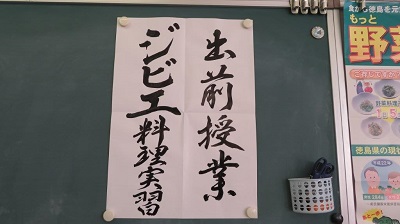 出前授業
ジビエ料理実習
食から徳島を元
もっと
野菜
徳島県の現状